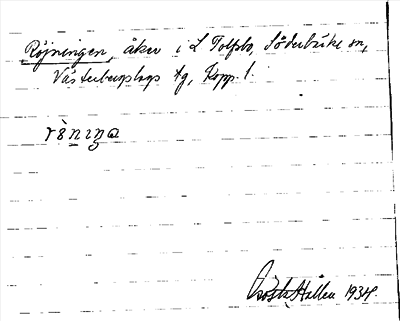 Röjningen, åker i L Tolfsbo, Söderbärke sn,
Västerbergslags tg, Kopp. l.
Gösta Hallen 1934.